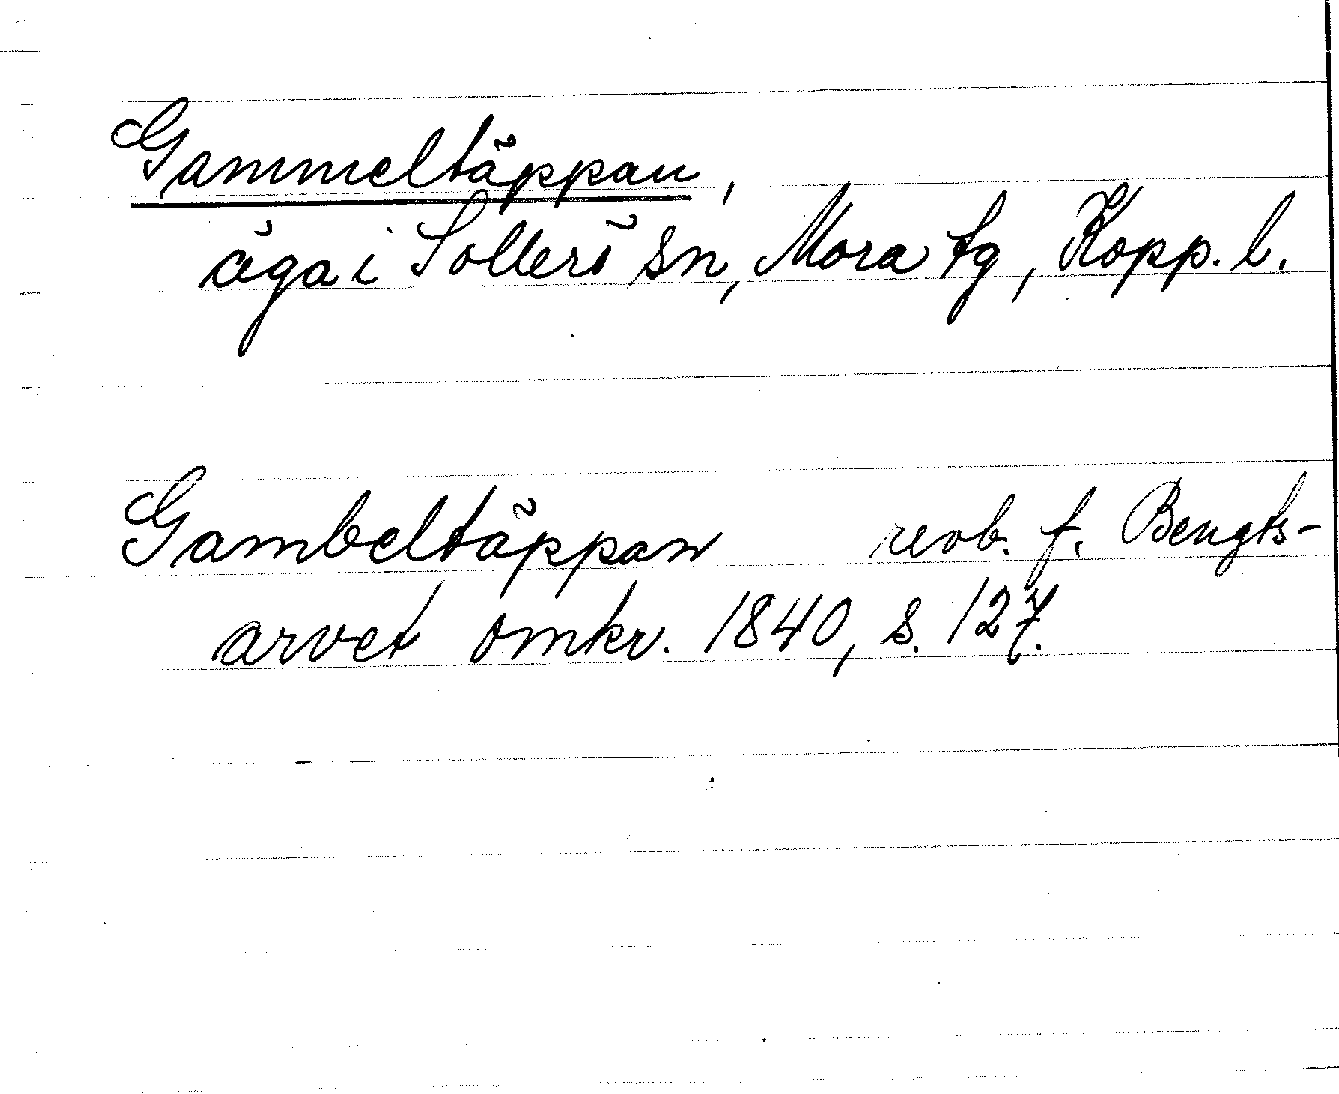 Gammeltäppan,
äga i Sollerö sn, Mora tg, Kopp. l.
Gambeltäppan revb. f. Bengts-
arvet omkr. 1840, s. 127.